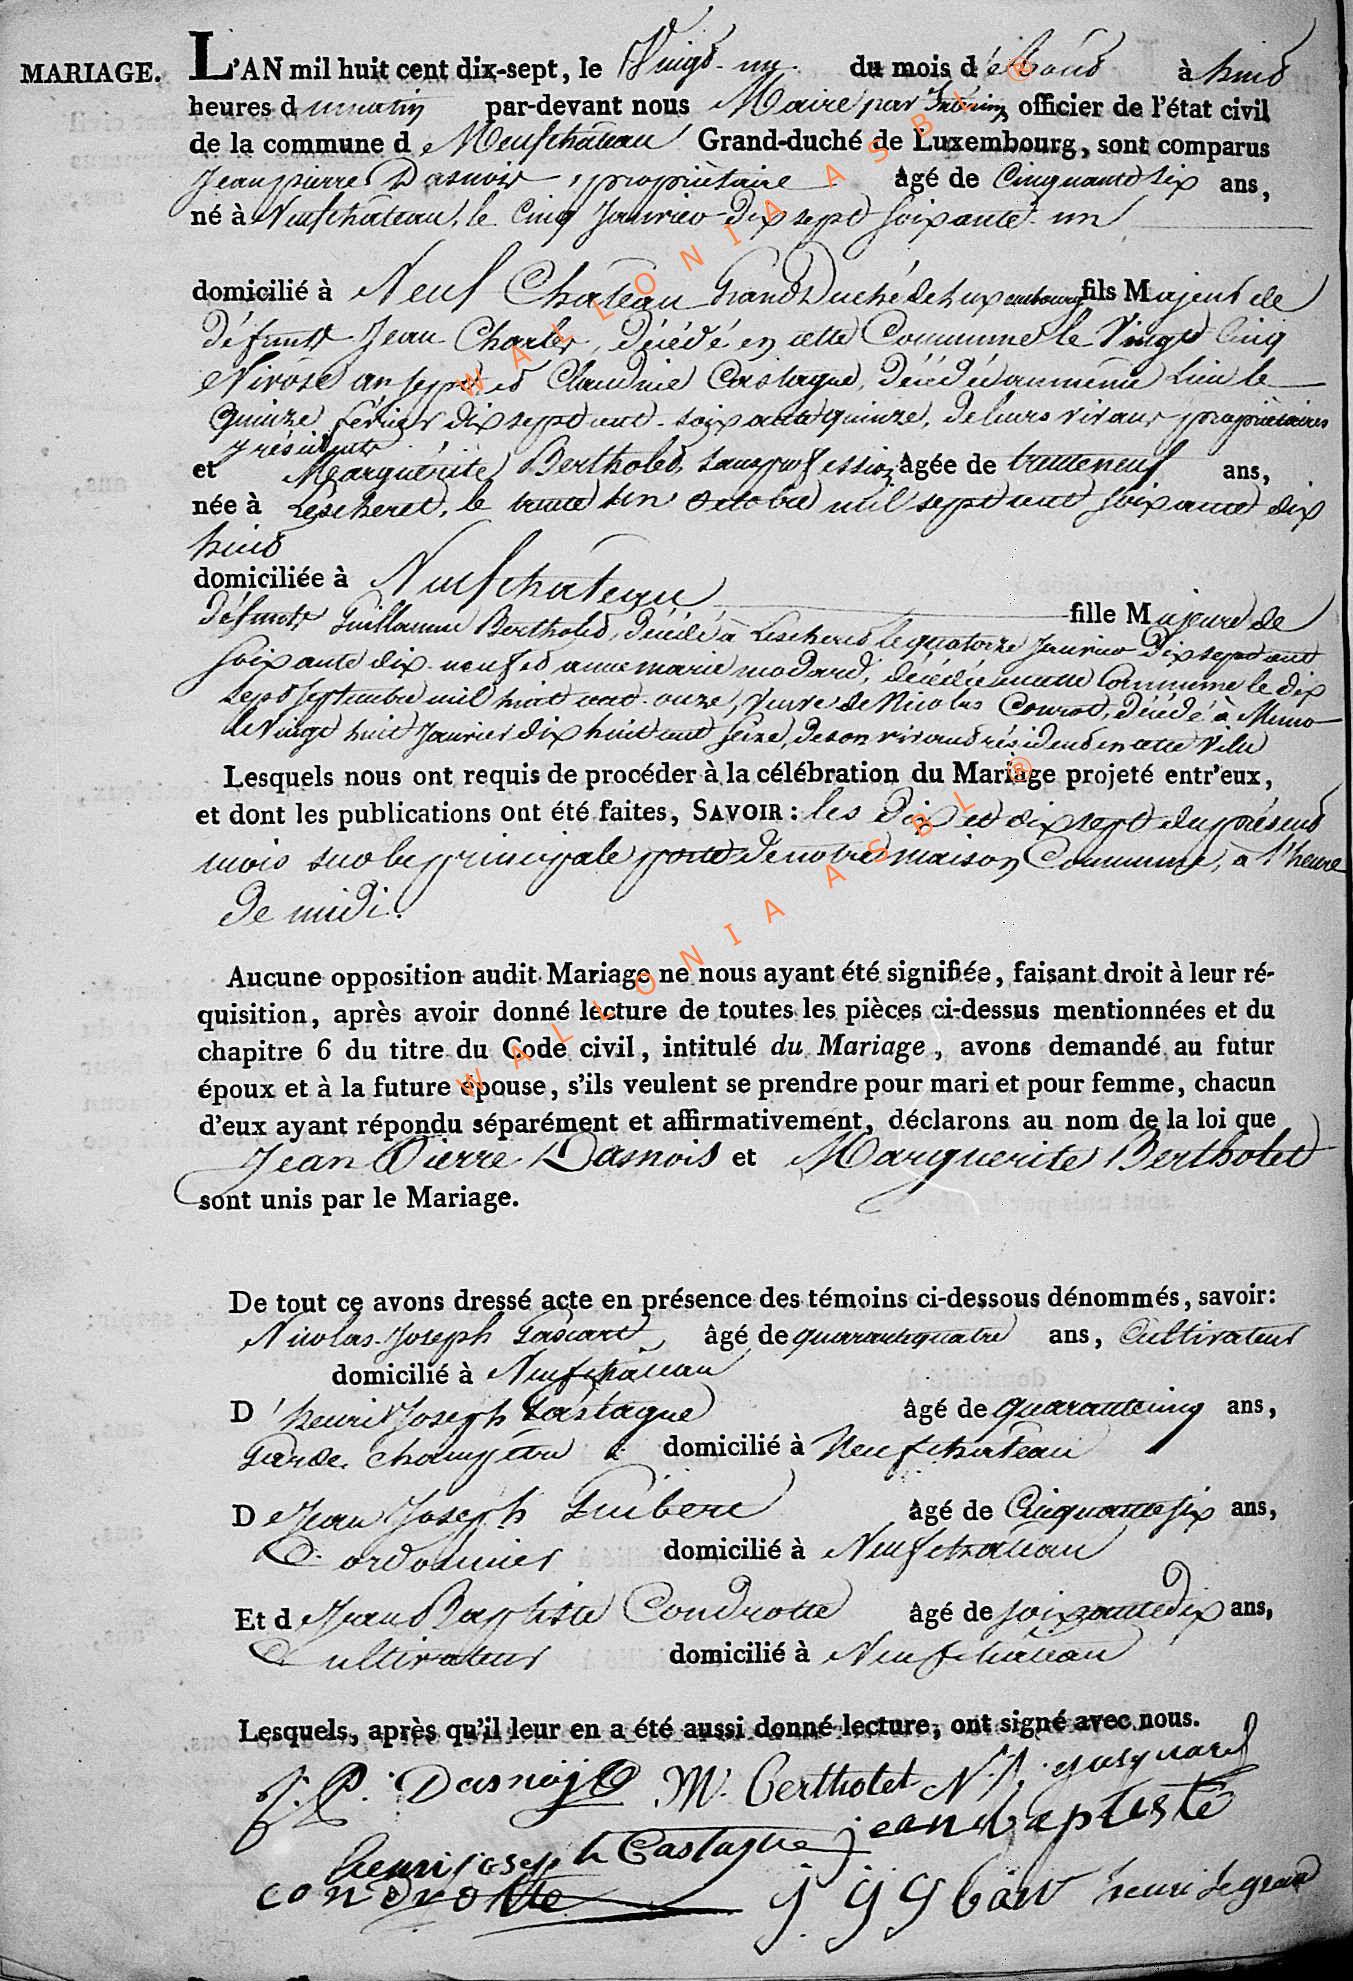 MARIAGE.
L'AN mil huit cent dix-sept, le Vingt-un du mois d'Août à huit
heures du matin par-devant nous Maire par Interim, officier de l'état civil
de la commune de Neufchâteau Grand-duché de Luxembourg, sont comparus
Jean pierre Dasnois, propriètaire âgé de Cinquante six ans,
né à Neufchâteau, le Cinq Janvier dix sept Soixante un
domicilié à Neuf Château Grand Duché de Luxembourg fils Majeur de
défunts Jean Charles, décédé en cette Commune le Vingt Cinq
Nivôse an sept et Claudine Castagne, décédée au même Lieu le
Quinze Février dix sept cent soixante quinze, de leurs vivans propriétaires
y résidents
et Marguérite Bertholet, sans profession âgée de trente neuf ans,
née à Lescheret, le trente un Octobre mil sept cent soixante dix
huit
domiciliée à Neufchâteau fille Majeure de
défunts Guillaume Bertholet, décédé à Lescheret le quatorze Janvier dix sept cent
soixante dix neuf et anne marie modard, décédée même Commune le dix
sept Septembre mil huit cent onze, Veuve de Nicolas Courot, décédé à Muno
le Vingt huit Janvier dix huit cent Seize, de son vivant résident en cette Ville
Lesquels nous ont requis de procéder à la célébration du Mariage projeté entr'eux,
et dont les publications ont été faites, SAVOIR : les Dix et dix sept du présent
mois sur la principale porte de notre maison Commune, à l'heure
de midi.
Aucune opposition audit Mariage ne nous ayant été signifiée, faisant droit à leur ré-
quisition, après avoir donné lecture de toutes les pièces ci-dessus mentionnées et du
chapitre 6 du titre du Code civil, intitulé du Mariage, avons demandé au futur
époux et à la future épouse, s'ils veulent se prendre pour mari et pour femme, chacun
d'eux ayant répondu séparément et affirmativement, déclarons au nom de la loi que
Jean Pierre Dasnois et Marguerite Bertholet
sont unis par le Mariage.
De tout ce avons dressé acte en présence des témoins ci-dessous dénommés, savoir:
Nicolas Joseph âgé de quarante quatre ans, Cultivateur
domicilié à Neufchâteau
D'henri Joseph Castagne âgé de quarante cinq ans,
Garde Champêtre domicilié à Neufchâteau
De Jean Joseph Guibert âgé de Cinquante six ans,
Cordonnier domicilié à Neufchâteau
Et de Jean Baptiste Condrotte âgé de soixante dix ans,
Cultivateur domicilié à Neufchâteau
Lesquels, après qu'il leur en a été aussi donné lecture, ont signé avec nous.
J. P. Dasnoÿ M. Bertholet N. J.
henri joseph Castagne jean baptiste
condrotte henri legrand
WALLONIA ASBL ®
WALLONIA ASBL ®